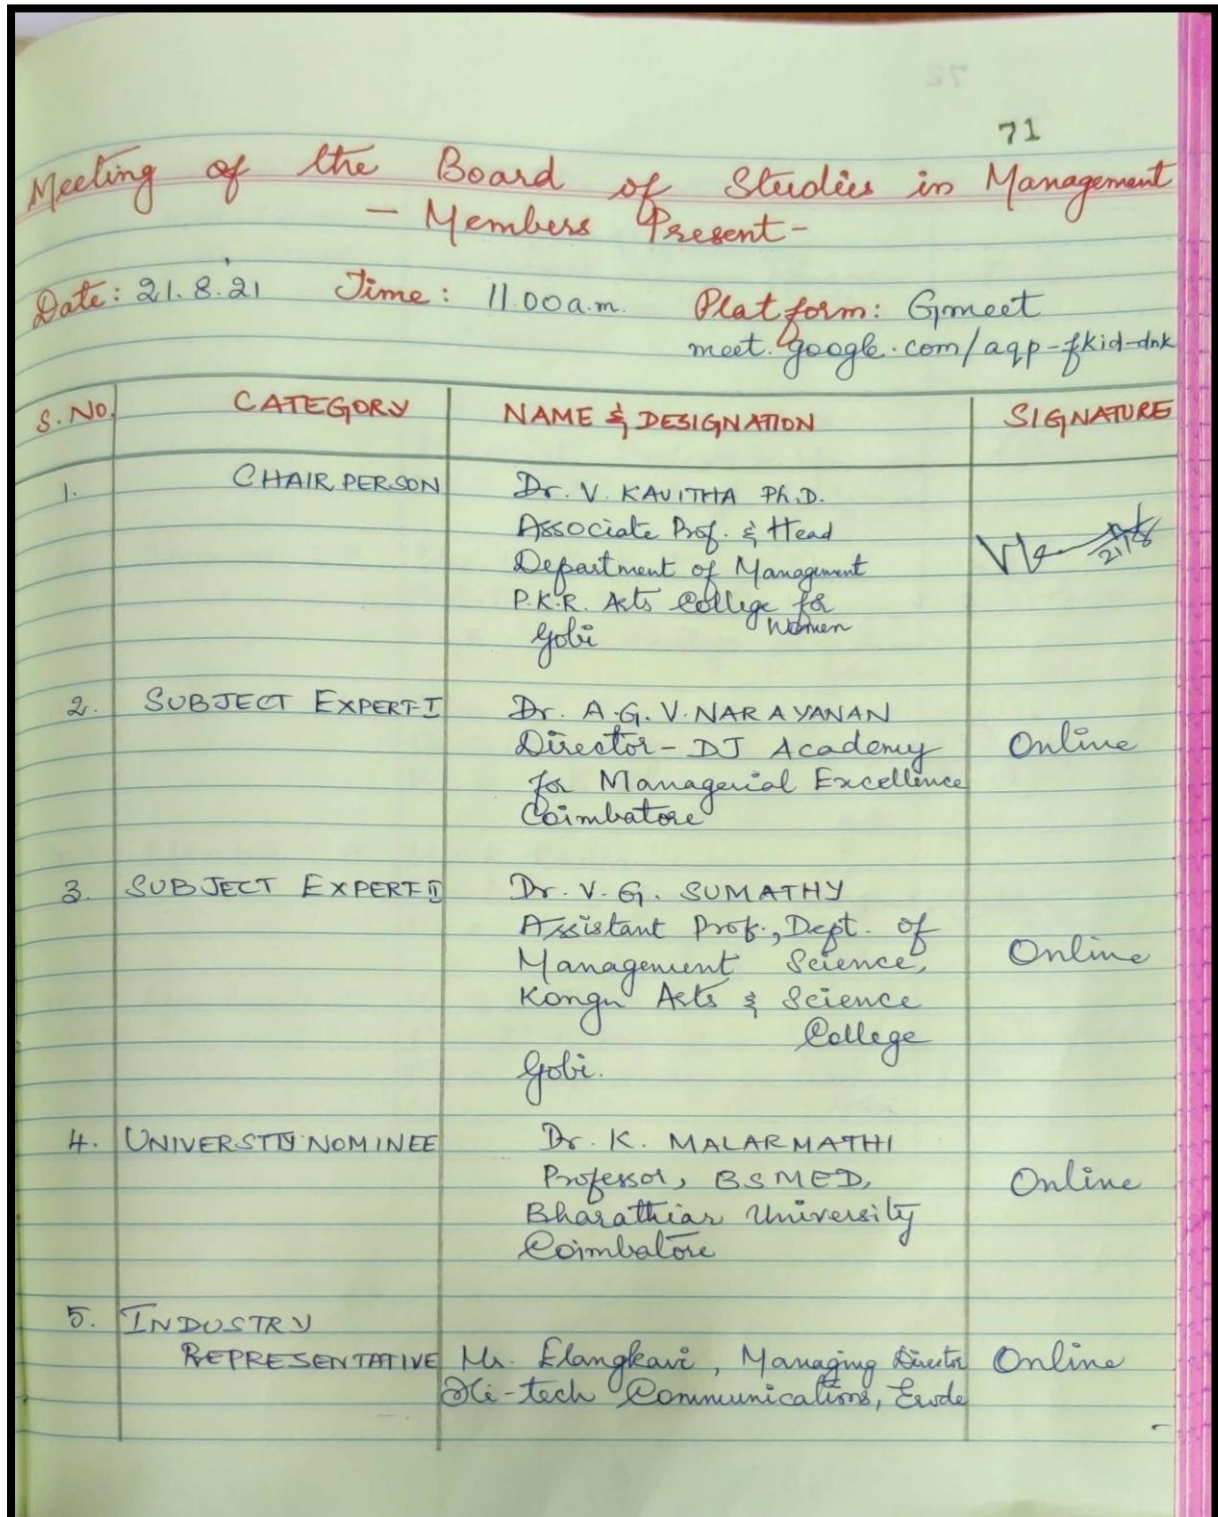 71
Meeting of the Board of Studies in Management
- Members Present -
Date: 21.8.21 Time: 11.00a.m. Platform: Gmeet
meet.google.com/aqp-fkid-dnk
S.No. CATEGORY NAME & DESIGNATION SIGNATURE
1. CHAIR PERSON Dr. V. KAVITHA Ph.D.
Associate Prof. & Head
Department of Management
P.K.R. Arts College for
Women
Gobi
21/8
2. SUBJECT EXPERT-I Dr. A.G.V. NARAYANAN
Director - DJ Academy Online
for Managerial Excellence
Coimbatore
3. SUBJECT EXPERT-II Dr. V.G. SUMATHY
Assistant Prof., Dept. of
Management Science, Online
Kongu Arts & Science
College
Gobi.
4. UNIVERSTIY NOMINEE Dr. K. MALARMATHI
Professor, BSMED, Online
Bharathiar University
Coimbatore
5. INDUSTRY
REPRESENTATIVE Mr. Elangkavi, Managing Director Online
Hi-tech Communications, Erode